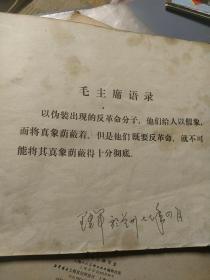 毛主席语录
以伪装出现的反革命分子，他们给人以假象，
而将真象荫蔽着。但是他们既要反革命，就不可
能将其真象荫蔽得十分彻底。
于兰州 七七年四月